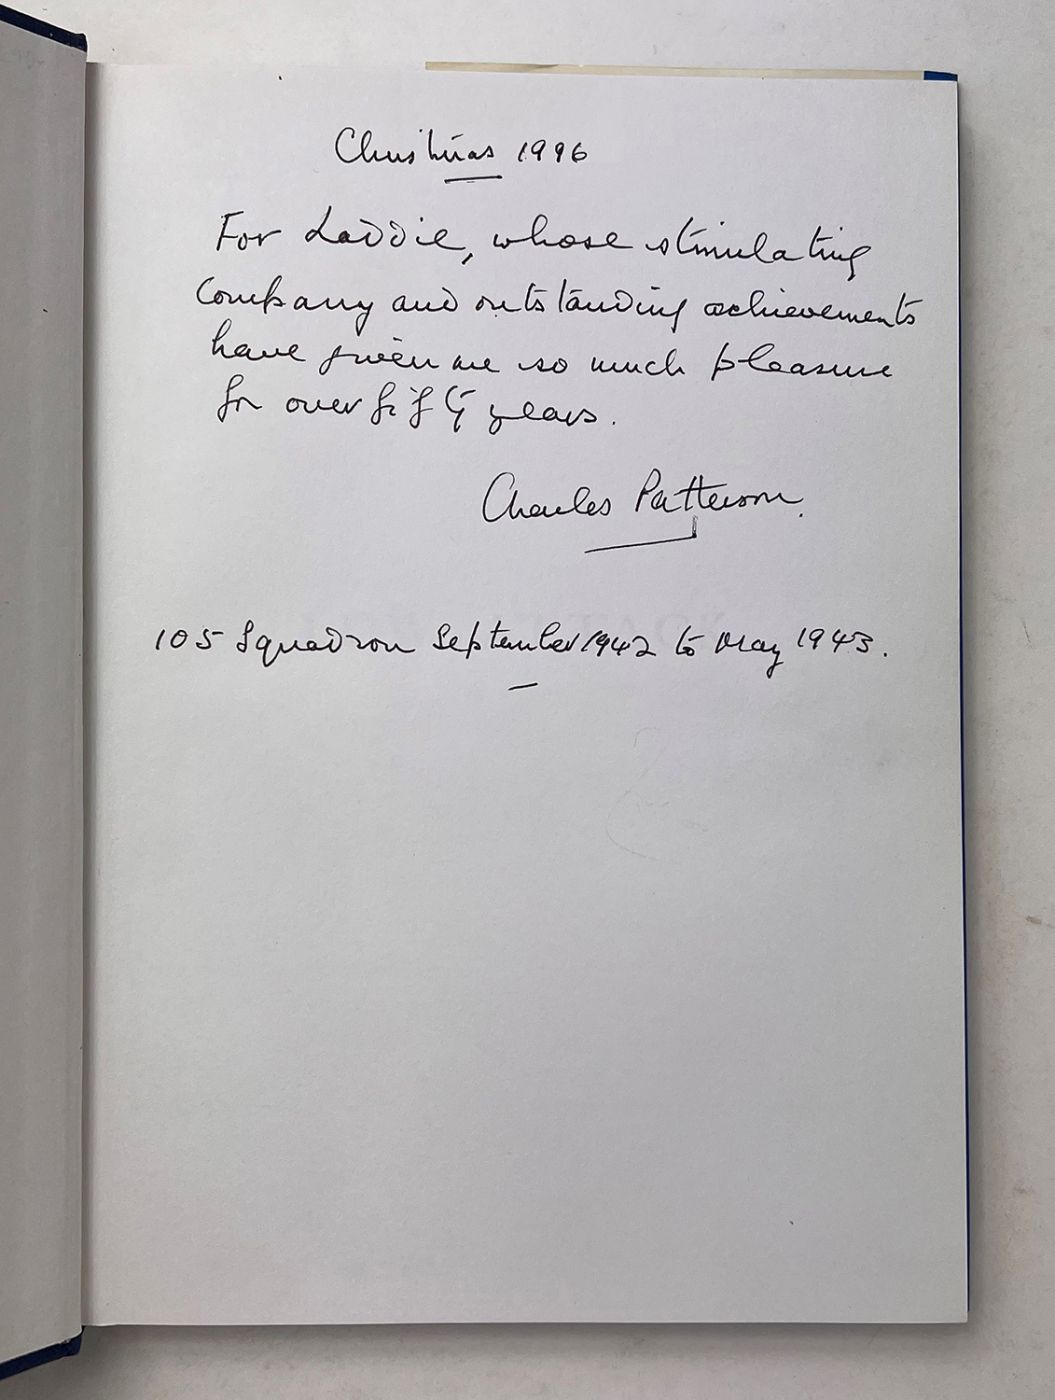 Christmas 1996
For Laddie, whose stimulating
company and outstanding achievements
have given me so much pleasure
for over fifty years.
Charles Patterson.
105 Squadron September 1942 to May 1943.